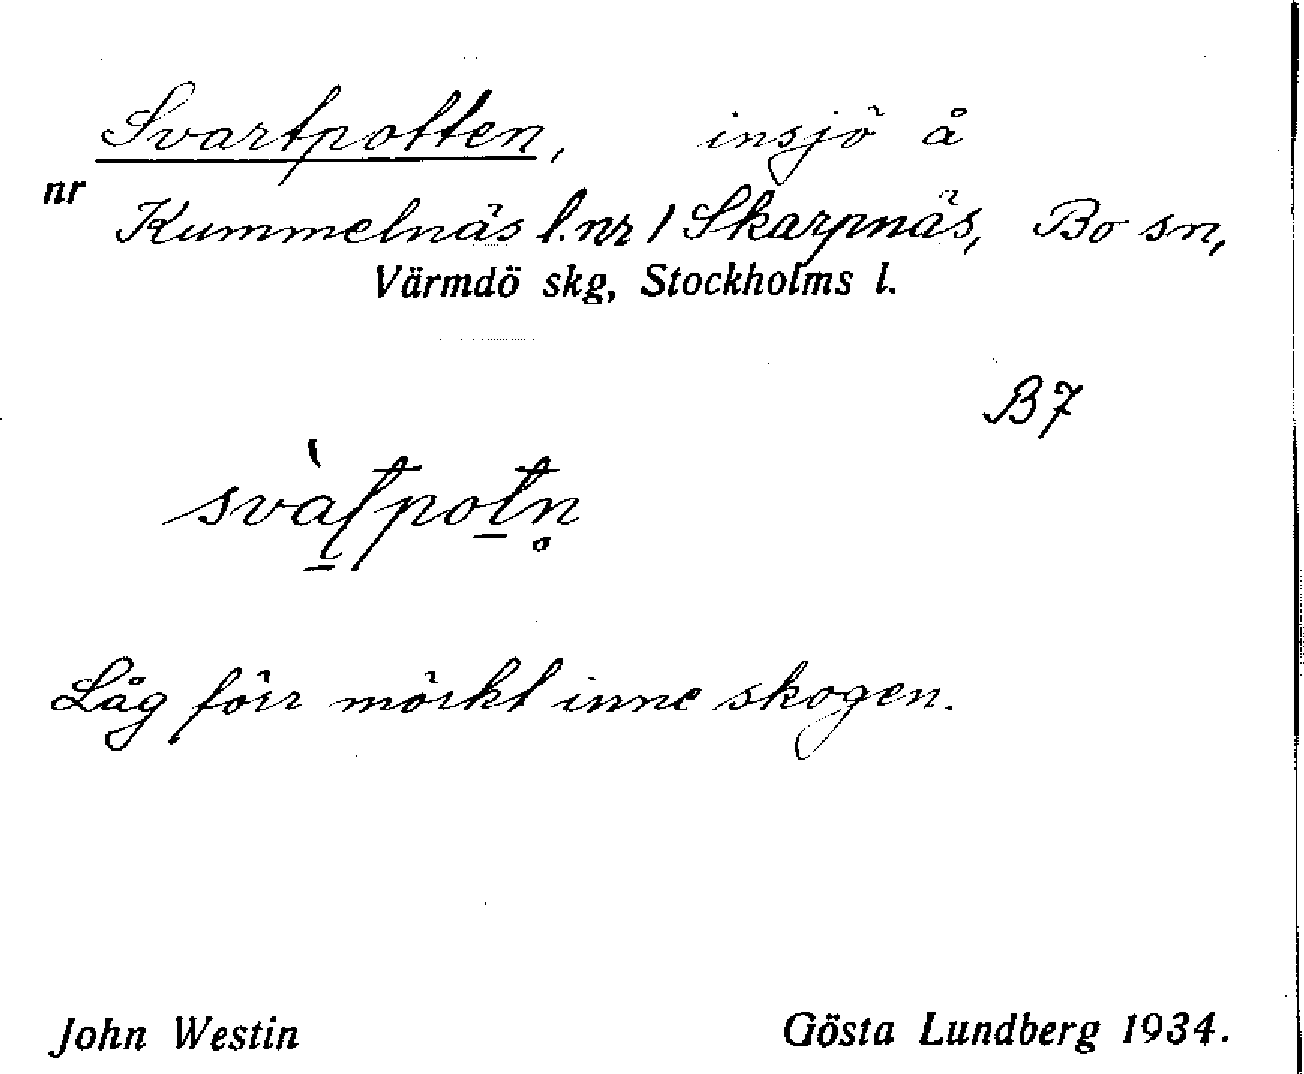 Svartpotten, insjö å
nr Kummelnäs l.nr 1 Skarpnäs, Bo sn,
Värmdö skg, Stockholms l.
B7
Låg förr mörkt inne skogen.
John Westin Gösta Lundberg 1934.